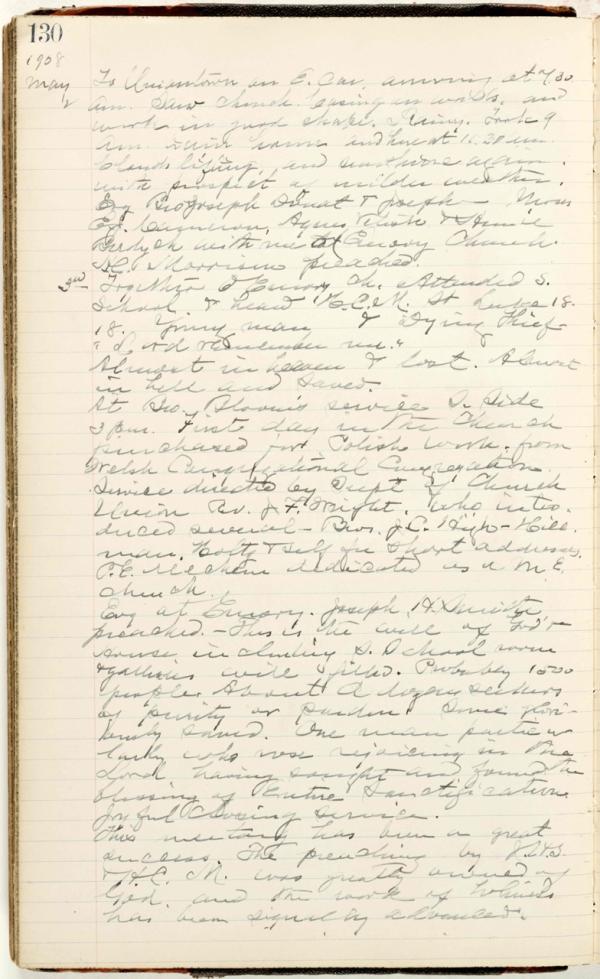 130
1908
May 2 To Uniontown on E. Car, arriving at 7/30
am. Saw Church. Casing on walls, and
work in good shape. Rainy. Took 9
am train home and here at 11.20 am.
Clouds lifting, and sunshine again.
with prospect of milder weather.
Evg Bro Joseph &
Ed. Cameron, Agnes & Annie
with me to Emory Church.
H.C. Morrison preached.
3rd Together to Emory Ch. Attended S.
School & heard H.C.M. St Luke 18.
18. Young man & Dying Thief
"Lord remember me."
Almost in heaven & lost. Almost
in hell and saved.
At Bro. Bloom's service S. Side
3 pm. First day in the Church
purchased for Polish work. from
Welsh Congregational Congregation.
Service directed by Supt of Church
Union Rev. J. F. Wright. Who intro.
duced several - Bros. J.C. High - Hill
man, Holty & self for short addresses.
P.E. Mechem dedicated as a M.E.
Church.
Evg at Emory. Joseph H Smith
preached. - This is the will of God &c
house including S. School room
& galleries well filled. Probably 1500
people. About a dozen seekers
of purity or pardon. Some glori-
ously saved. One man particu
larly who rose rejoicing in the
Lord, having sought and found the
blessing of Entire Sanctification.
Joyful Closing service.
This meeting has been a great
success. The preaching by J.H.S.
& H.C. M. was greatly owned of
God, and the work of holiness
has been signally advanced.